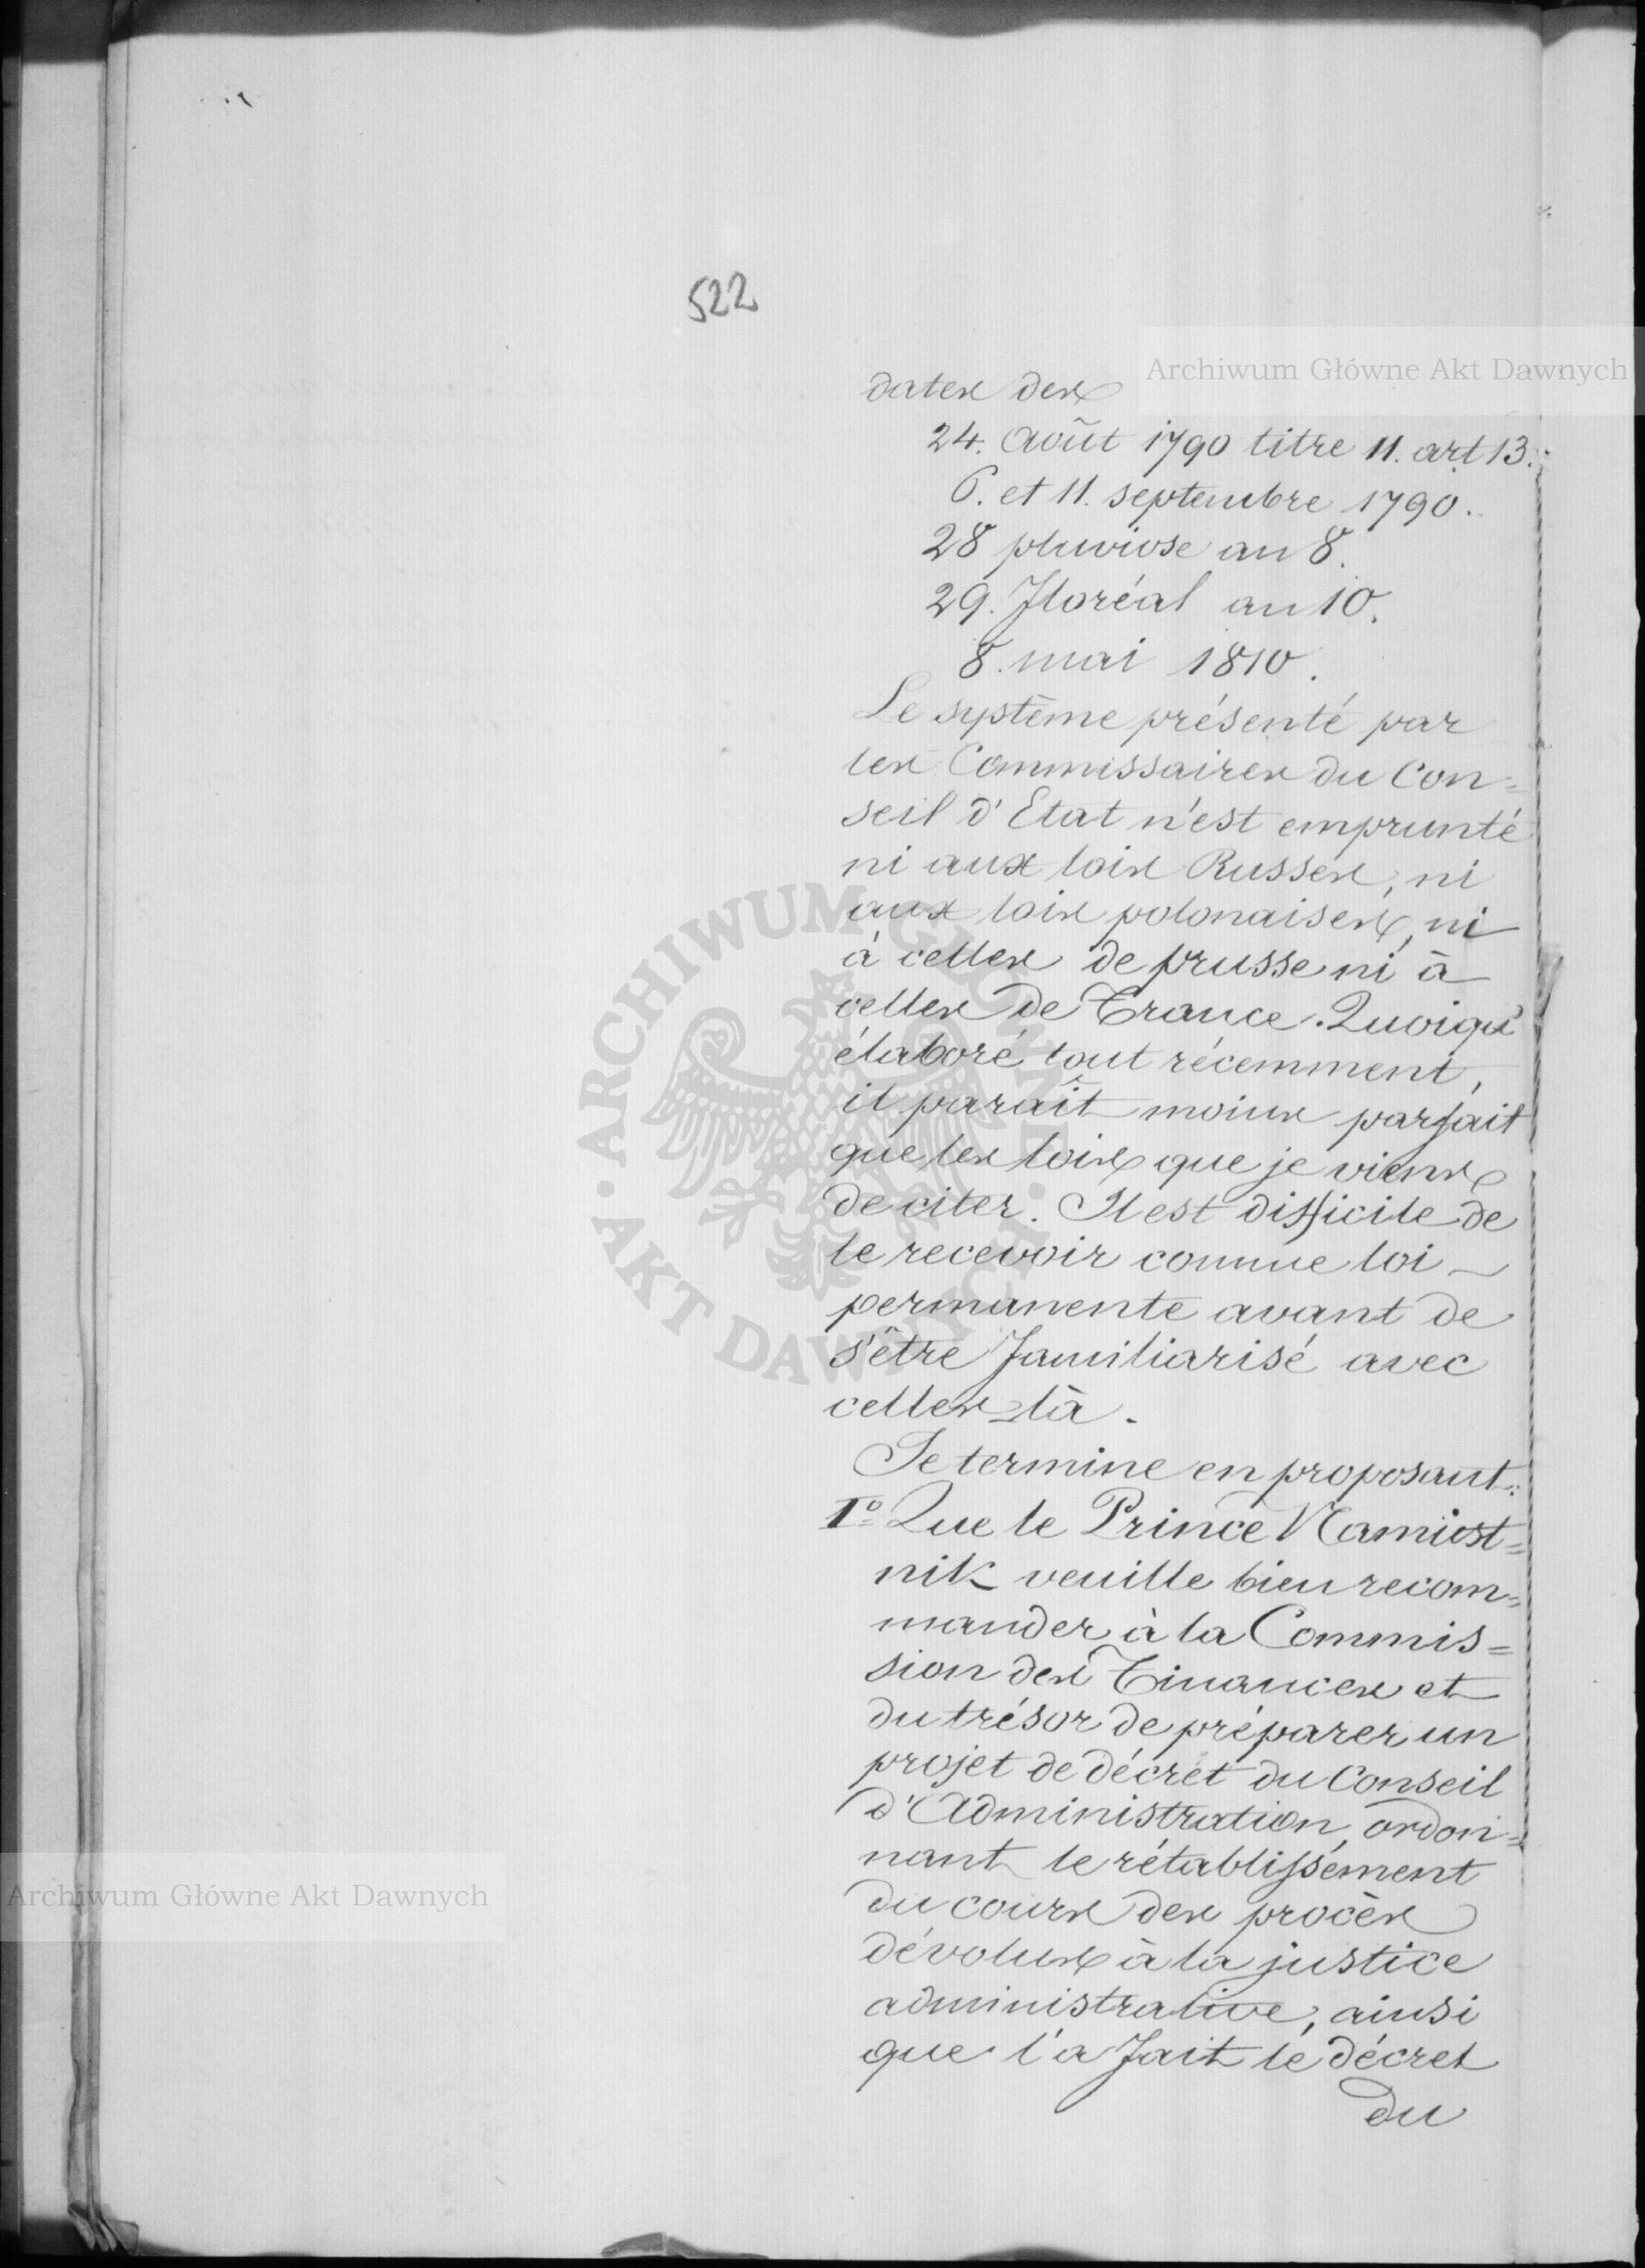 522
Archiwum Główne Akt Dawnych
dates des
24. Août 1790 titre 11. art 13.
6. et 11. septembre 1790.
28 pluviose an 8.
29. floréal an 10.
8. mai 1810.
Le système présenté par
les Commissaires du Con=
seil d'Etat n'est emprunté
ni aux lois Russes, ni
aux lois polonaises, ni
à celles de prusse ni à
celles de France. Quoiqu'
élaboré tout récemment,
il parait moins parfait
que les lois que je viens
de citer. Il est difficile de
le recevoir comme loi
permanente avant de
s'être familiarisé avec
celles-là.
Je termine en proposant:
1º Que le Prince Namiest=
nik veuille bien recom=
mander à la Commis=
sion des Finances et
du trésor de préparer un
projet de décret du Conseil
d'Administration, ordon=
nant le rétablissement
du cours des procès
dévolus à la justice
administrative, ainsi
que l'a fait le décret
du
Archiwum Główne Akt Dawnych
ARCHIWUM GŁÓWNE · AKT DAWNYCH ·